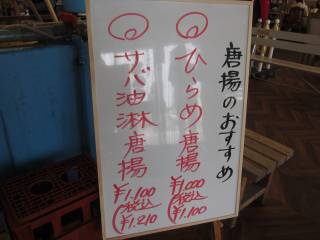 唐揚のおすすめ
ひらめ唐揚
¥1,000
(税込
¥1,100
サバ油淋唐揚
¥1,100
(税込
¥1,210